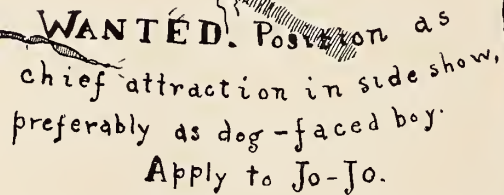 WANTED. Position as
chief attraction in side show,
preferably as dog-faced boy.
Apply to Jo-Jo.